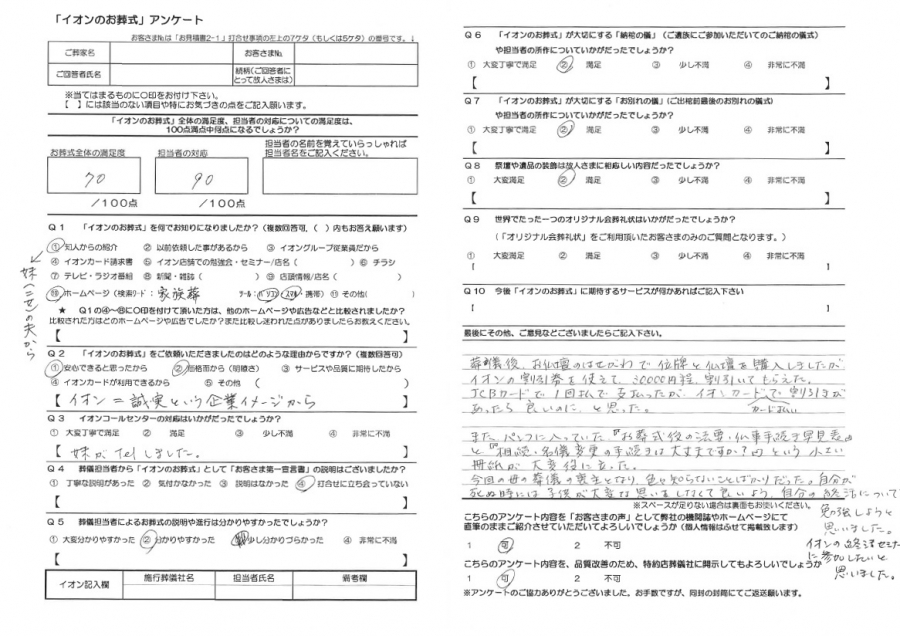 「イオンのお葬式」アンケート
お客さま№は「お見積書2-1」打合せ事項の左上の7ケタ（もしくは5ケタ）の番号です。↓
ご葬家名
お客さま№
ご回答者氏名
続柄（ご回答者に
とって故人さまは）
※当てはまるものに○印をお付け下さい。
【　】には該当のない項目や特にお気づきの点をご記入願います。
「イオンのお葬式」全体の満足度、担当者の対応についての満足度は、
100点満点中何点になるでしょうか？
お葬式全体の満足度
担当者の対応
担当者の名前を覚えていらっしゃれば
担当者名をご記入ください。
70
90
／100点
／100点
Q1　「イオンのお葬式」を何でお知りになりましたか？（複数回答可、（　）内もお答え願います）
①知人からの紹介　② 以前依頼した事があるから　③ イオングループ従業員だから
④ イオンカード請求書　⑤ イオン店舗での勉強会・セミナー/店名（　　　）　⑥ チラシ
⑦ テレビ・ラジオ番組　⑧ 新聞・雑誌（　　　）　⑨ 店頭情報/店名（　　　）
⑩ホームページ（検索ﾜｰﾄﾞ：家族葬　　ﾂｰﾙ：ﾊﾟｿｺﾝ　ｽﾏﾎ・携帯）⑪ その他（　　　）
妹（ニセ）の夫から
★　Q1の④～⑩に○印を付けて頂いた方は、他のホームページや広告などと比較されましたか？
比較された方はどのホームページや広告でしたか？また比較し迷われた点がありましたらお教えください。
【　】
Q2　「イオンのお葬式」をご依頼いただきましたのはどのような理由からですか？（複数回答可）
①安心できると思ったから　②価格面から（明瞭さ）　③ サービスや品質に期待したから
④ イオンカードが利用できるから　⑤ その他（　　　）
【イオン＝誠実という企業イメージから】
Q3　イオンコールセンターの対応はいかがだったでしょうか？
① 大変丁寧で満足　② 満足　③ 少し不満　④ 非常に不満
【妹がtelしました。】
Q4　葬儀担当者から「イオンのお葬式」として「お客さま第一宣言書」の説明はございましたか？
① 丁寧な説明があった　② 気付かなかった　③ 説明はなかった　④打合せに立ち合っていない
【　】
Q5　葬儀担当者によるお葬式の説明や進行は分かりやすかったでしょうか？
① 大変分かりやすかった　②分かりやすかった　③少し分かりづらかった　④ 非常に不満
【　】
イオン記入欄
施行葬儀社名
担当者氏名
備考欄
Q6　「イオンのお葬式」が大切にする「納棺の儀」（ご遺族にご参加いただいてのご納棺の儀式）
や担当者の所作についていかがだったでしょうか？
① 大変丁寧で満足　② 満足　③ 少し不満　④ 非常に不満
【　】
Q7　「イオンのお葬式」が大切にする「お別れの儀」（ご出棺前最後のお別れの儀式）
や担当者の所作についていかがだったでしょうか？
① 大変丁寧で満足　② 満足　③ 少し不満　④ 非常に不満
【　】
Q8　祭壇や遺品の装飾は故人さまに相応しい内容だったでしょうか？
① 大変満足　② 満足　③ 少し不満　④ 非常に不満
【　】
Q9　世界でたった一つのオリジナル会葬礼状はいかがだったでしょうか？
（「オリジナル会葬礼状」をご利用頂いたお客さまのみのご質問となります。）
① 大変満足　② 満足　③ 少し不満　④ 非常に不満
【　】
Q10　今後「イオンのお葬式」に期待するサービスが何かあればご記入下さい
【　】
最後にその他、ご意見などございましたらご記入下さい。
葬儀後、お仏壇のはせがわで位牌と仏壇を購入しましたが
イオンの割引券を使えて、30000円程、割引いてもらえた。
JCBカードで1回払で支払ったが、イオンカードで割引きが
あったら良いのに、と思った。
カード払い
また、パンフに入っていた『お葬式後の法要・仏事手続き早見表』
と『相続・名儀変更の手続きは大丈夫ですか？』という小さい
冊紙が大変役に立った。
今回の母の葬儀の喪主となり、色々知らないことばかりだった。自分が
死ぬ時には子供が大変な思いをしなくて良いよう、自分の終活について
勉強しようと
思いました。
イオンの終活セミナー
に参加したいと
思いました。
※スペースが足りない場合は裏面もお使いください。
こちらのアンケート内容を「お客さまの声」として弊社の機関誌やホームページにて
直筆のままご紹介させていただいてよろしいでしょうか（個人情報はふせて掲載致します）
1　可　2　不可
こちらのアンケート内容を、品質改善のため、特約店葬儀社に開示してもよろしいでしょうか
1　可　2　不可
※アンケートのご協力ありがとうございました。お手数ですが、同封の封筒にてご返送願います。